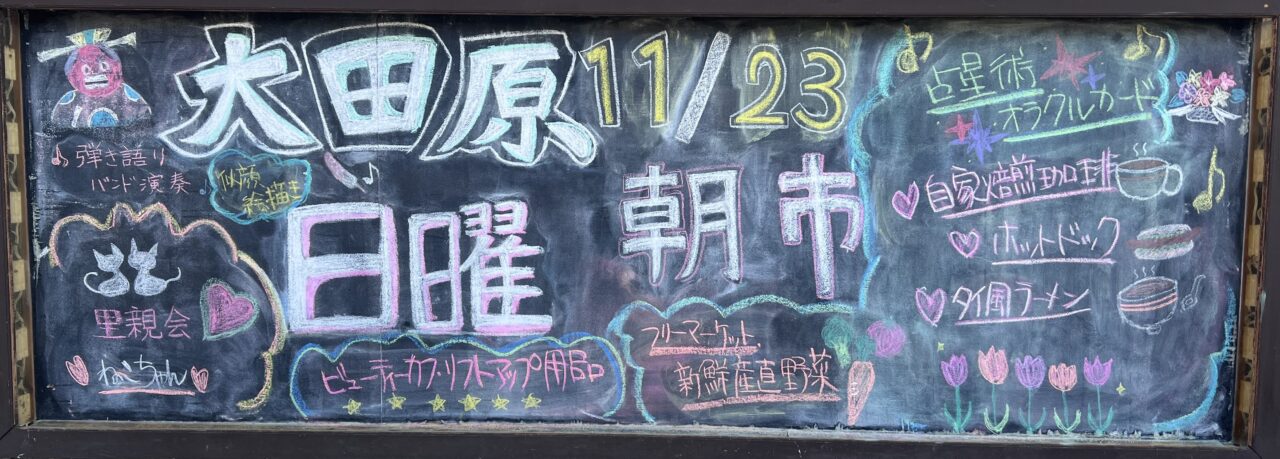 大田原 11/23
日曜 朝市
弾き語り
バンド演奏
似顔
絵描き
里親会
ねこちゃん
ビューティーカフ・リフトアップ用品
フリーマーケット
新鮮産直野菜
占星術
オラクルカード
自家焙煎珈琲
ホットドック
タイ風ラーメン